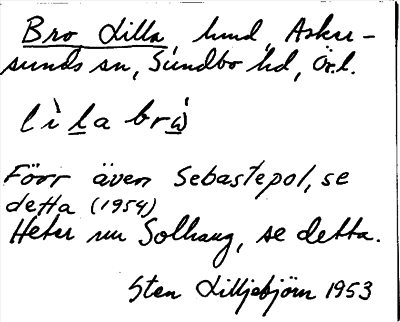 Bro, Lilla, hmd, Asker-
sunds sn, Sundbo hd, Ör.l.
lìla brὼ
Förr även Sebastepol, se
detta (1954)
Heter nu Solhaug, se detta.
Sten Lilljebjörn 1953